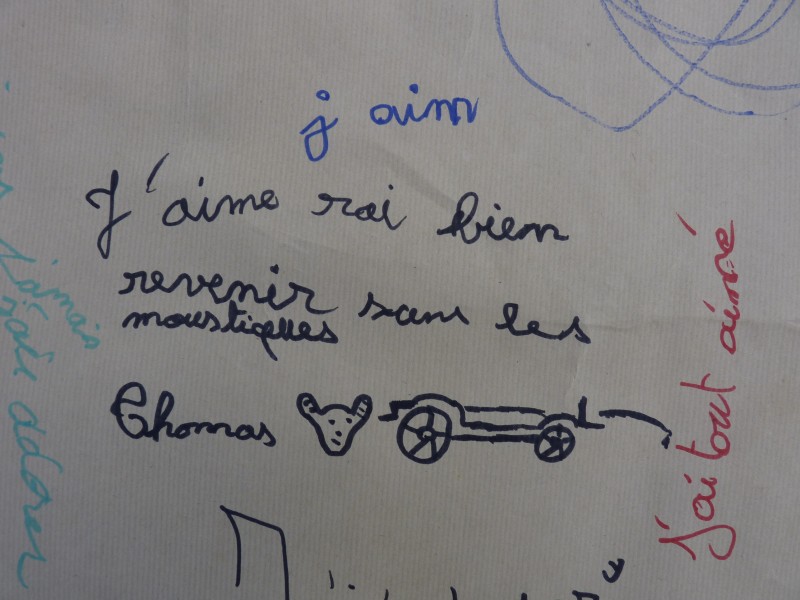 j aim
J'aime rai bien
revenir sans les
moustiques
Thomas
J'ai tout aimé
jamais
adorer